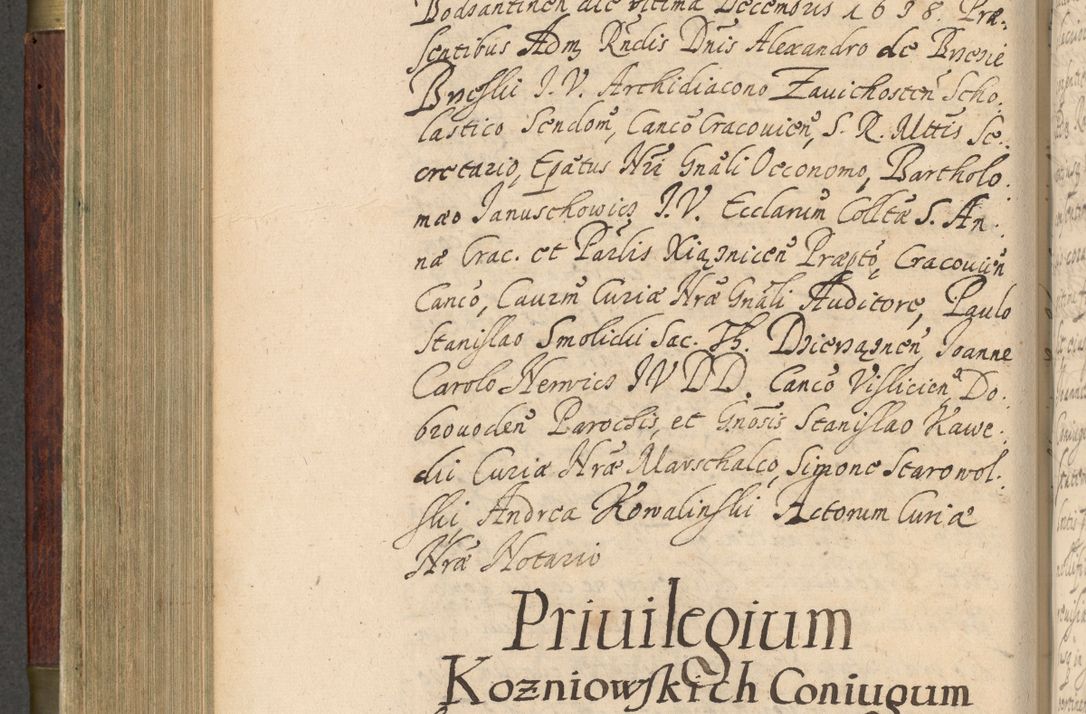 Bodsantinen die vltima Decembris 1698. Præ.
sentibus Adm Rndis Dnis Alexandro de Brzezie
Brzeski I.V. Archidiacono Zauichosten Scho.
lastico Sendom, Canco Cracouien, S. R. Mttis Se.
cretario, Epatus Nri Gnali Oeconomo, Bartholo.
mæo Januschowicz I.V. Ecclarum Colltæ S. An.
næ Crac. et Parlis Xiąznicen Præpto, Cracouien
Canco, Caurm Curiæ Nræ Gnali Auditore, Paulo
Stanislao Smolicki Sac. Th. Dzierząznen, Joanne
Carolo Herwicz IVDD. Canco Vislicien, Do.
brouoden Parochis, et Gnosis Stanislao Kawe.
cki Curiæ Nræ Marschalco, Simone Starowol.
ski, Andrea Kowalinski Actorum Curiæ
Nræ Notario
Priuilegium
Kozniowskich Coniugum